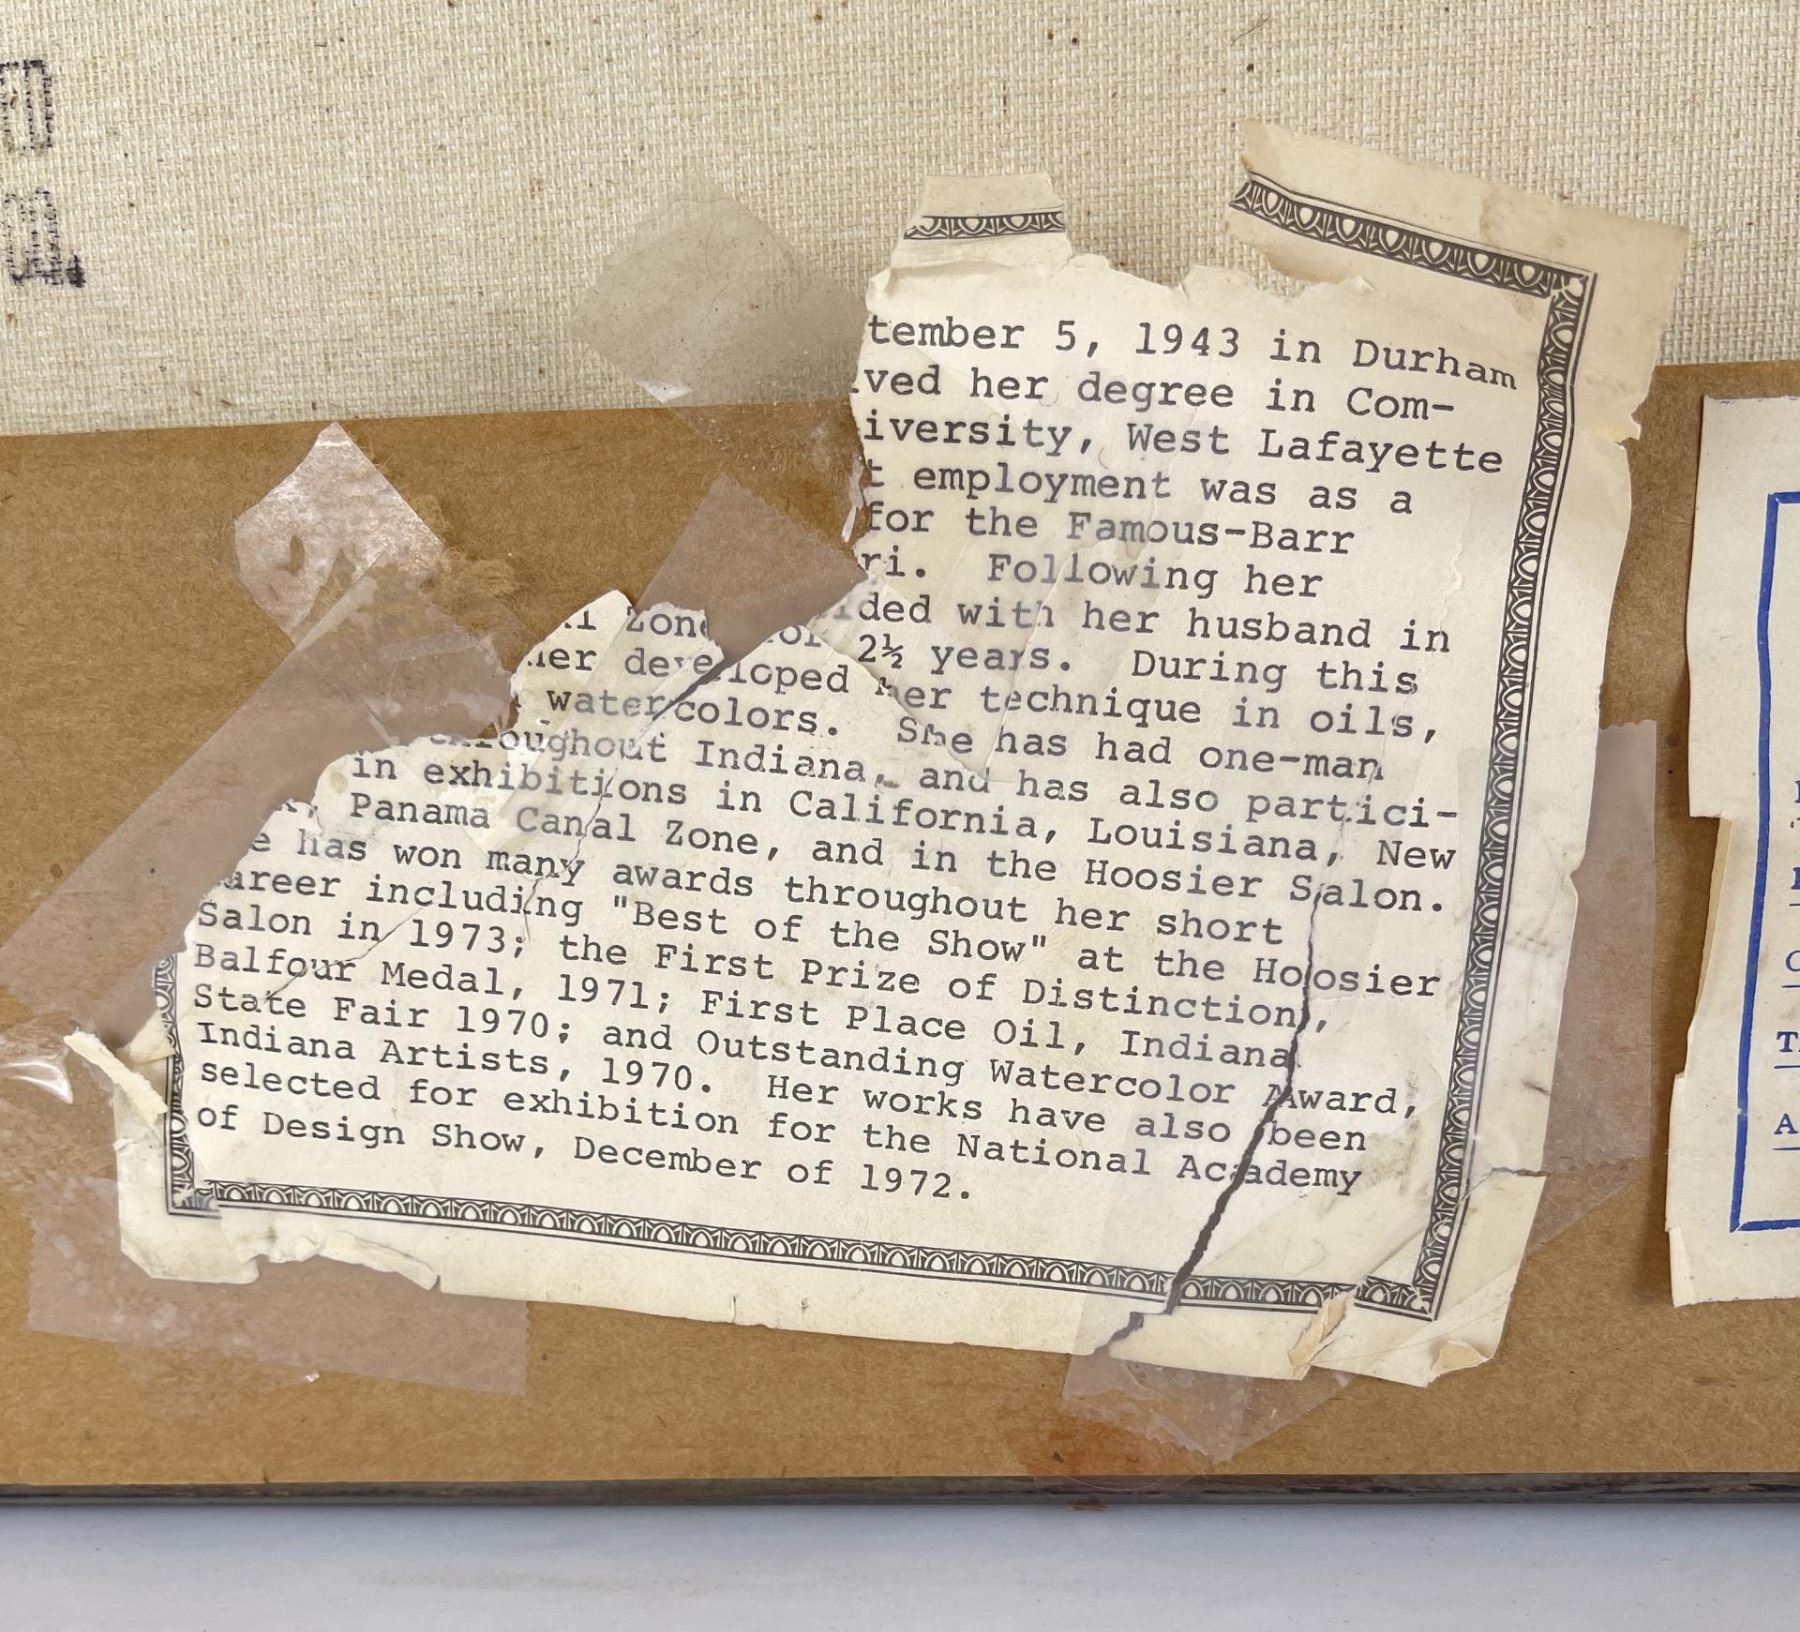 tember 5, 1943 in Durham
ved her degree in Com-
iversity, West Lafayette
t employment was as a
for the Famous-Barr
ri. Following her
ded with her husband in
l Zone for 2½ years. During this
her developed her technique in oils,
watercolors. She has had one-man
throughout Indiana, and has also partici-
in exhibitions in California, Louisiana, New
Panama Canal Zone, and in the Hoosier Salon.
e has won many awards throughout her short
areer including "Best of the Show" at the Hoosier
Salon in 1973; the First Prize of Distinction,
Balfour Medal, 1971; First Place Oil, Indiana
State Fair 1970; and Outstanding Watercolor Award,
Indiana Artists, 1970. Her works have also been
selected for exhibition for the National Academy
of Design Show, December of 1972.